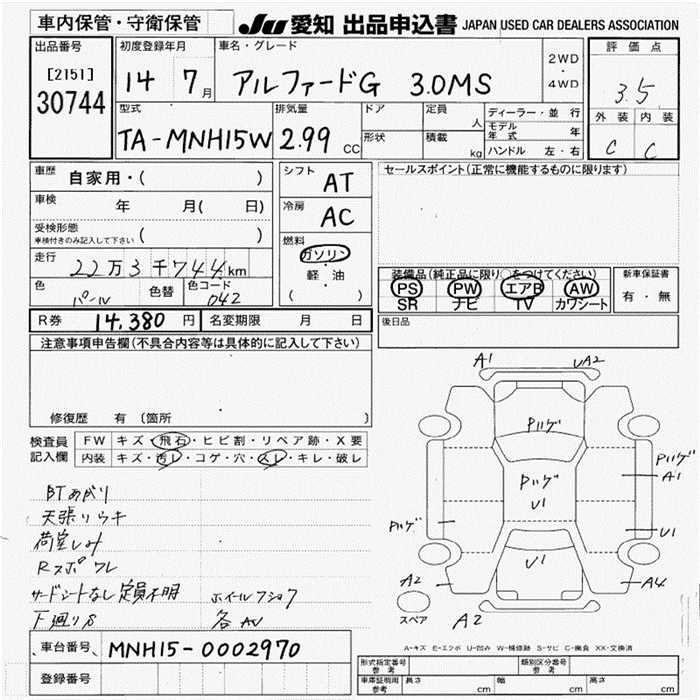 車内保管・守衛保管 JU 愛知 出品申込書 JAPAN USED CAR DEALERS ASSOCIATION
出品番号 初度登録年月 車名・グレード 2WD・4WD 評価点
[2151] 30744 14 7月 アルファードG 3.0MS 3.5
型式 排気量 ドア 定員 人 ディーラー・並行 外装 内装
TA-MNH15W 2.99 CC 形状 積載 kg モデル年式 年 C C
ハンドル 左・右
車歴 自家用・( ) シフト AT セールスポイント(正常に機能するものに限ります)
車検 年 月( 日) 冷房 AC
受検形態 車検付きのみ記入して下さい ( )
燃料 ガソリン 軽・油 ( )
走行 22万3千744km
色 パール 色替 色コード 042
装備品(純正品に限り○をつけてください) 新車保証書
PS PW エアB AW 有・無
SR ナビ TV カワシート
R券 14,380円 名変期限 月 日 後日品
注意事項申告欄(不具合内容等は具体的に記入して下さい)
修復歴 有 〔箇所 〕
検査員記入欄 FW キズ・飛石・ヒビ割・リペア跡・X要
内装 キズ・汚レ・コゲ・穴・スレ・キレ・破レ
A1 UA2
Pハゲ
Pハゲ U1
Pハゲ A1
Pハゲ
U1
U1
A2 A4
スペア A2
BTあがり
天張リウキ
荷室しみ
Rスポワレ
サードシートなし 定員不明 ホイールフショク
下廻りS 各AU
A-キズ E-エクボ U-凹み W-補修跡 S-サビ C-腐食 XX-交換済
車台番号 MNH15-0002970
登録番号
形式指定番号 参考 類別区分番号 参考
車庫証明用 参考 長さ cm 幅 cm 高さ cm